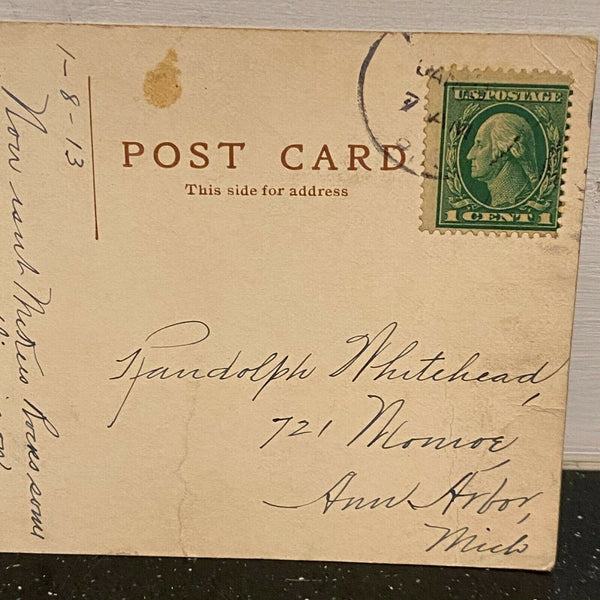 1-8-13
Now isnt McKees Rocks some
POST CARD
This side for address
U.S. POSTAGE
1 CENT 1
Randolph Whitehead,
721 Monroe,
Ann Arbor,
Mich